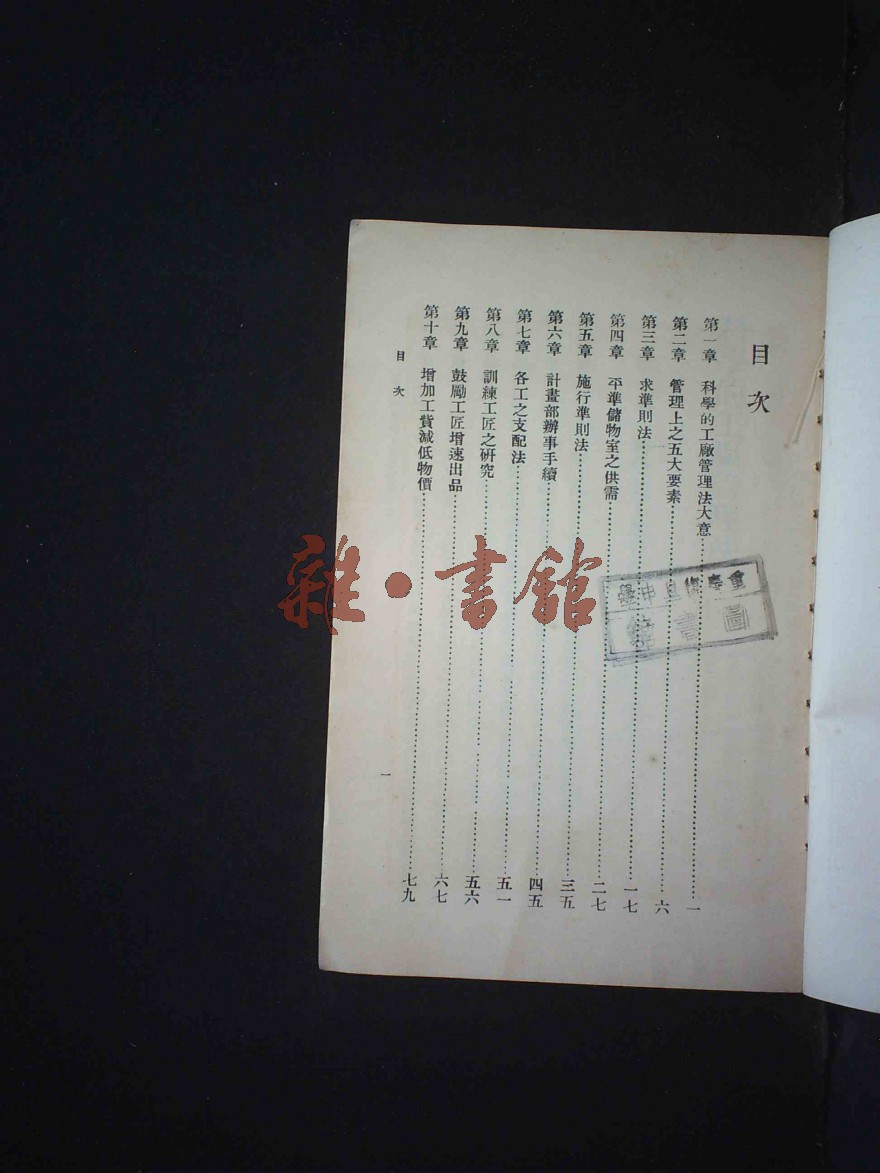 目次
第一章　科學的工廠管理法大意……一
第二章　管理上之五大要素……六
第三章　求準則法……一七
第四章　平準儲物室之供需……二七
第五章　施行準則法……三五
第六章　計畫部辦事手續……四五
第七章　各工之支配法……五一
第八章　訓練工匠之研究……五六
第九章　鼓勵工匠增速出品……六七
第十章　增加工貲減低物價……七九
目次
一
雜·書館
圖書館